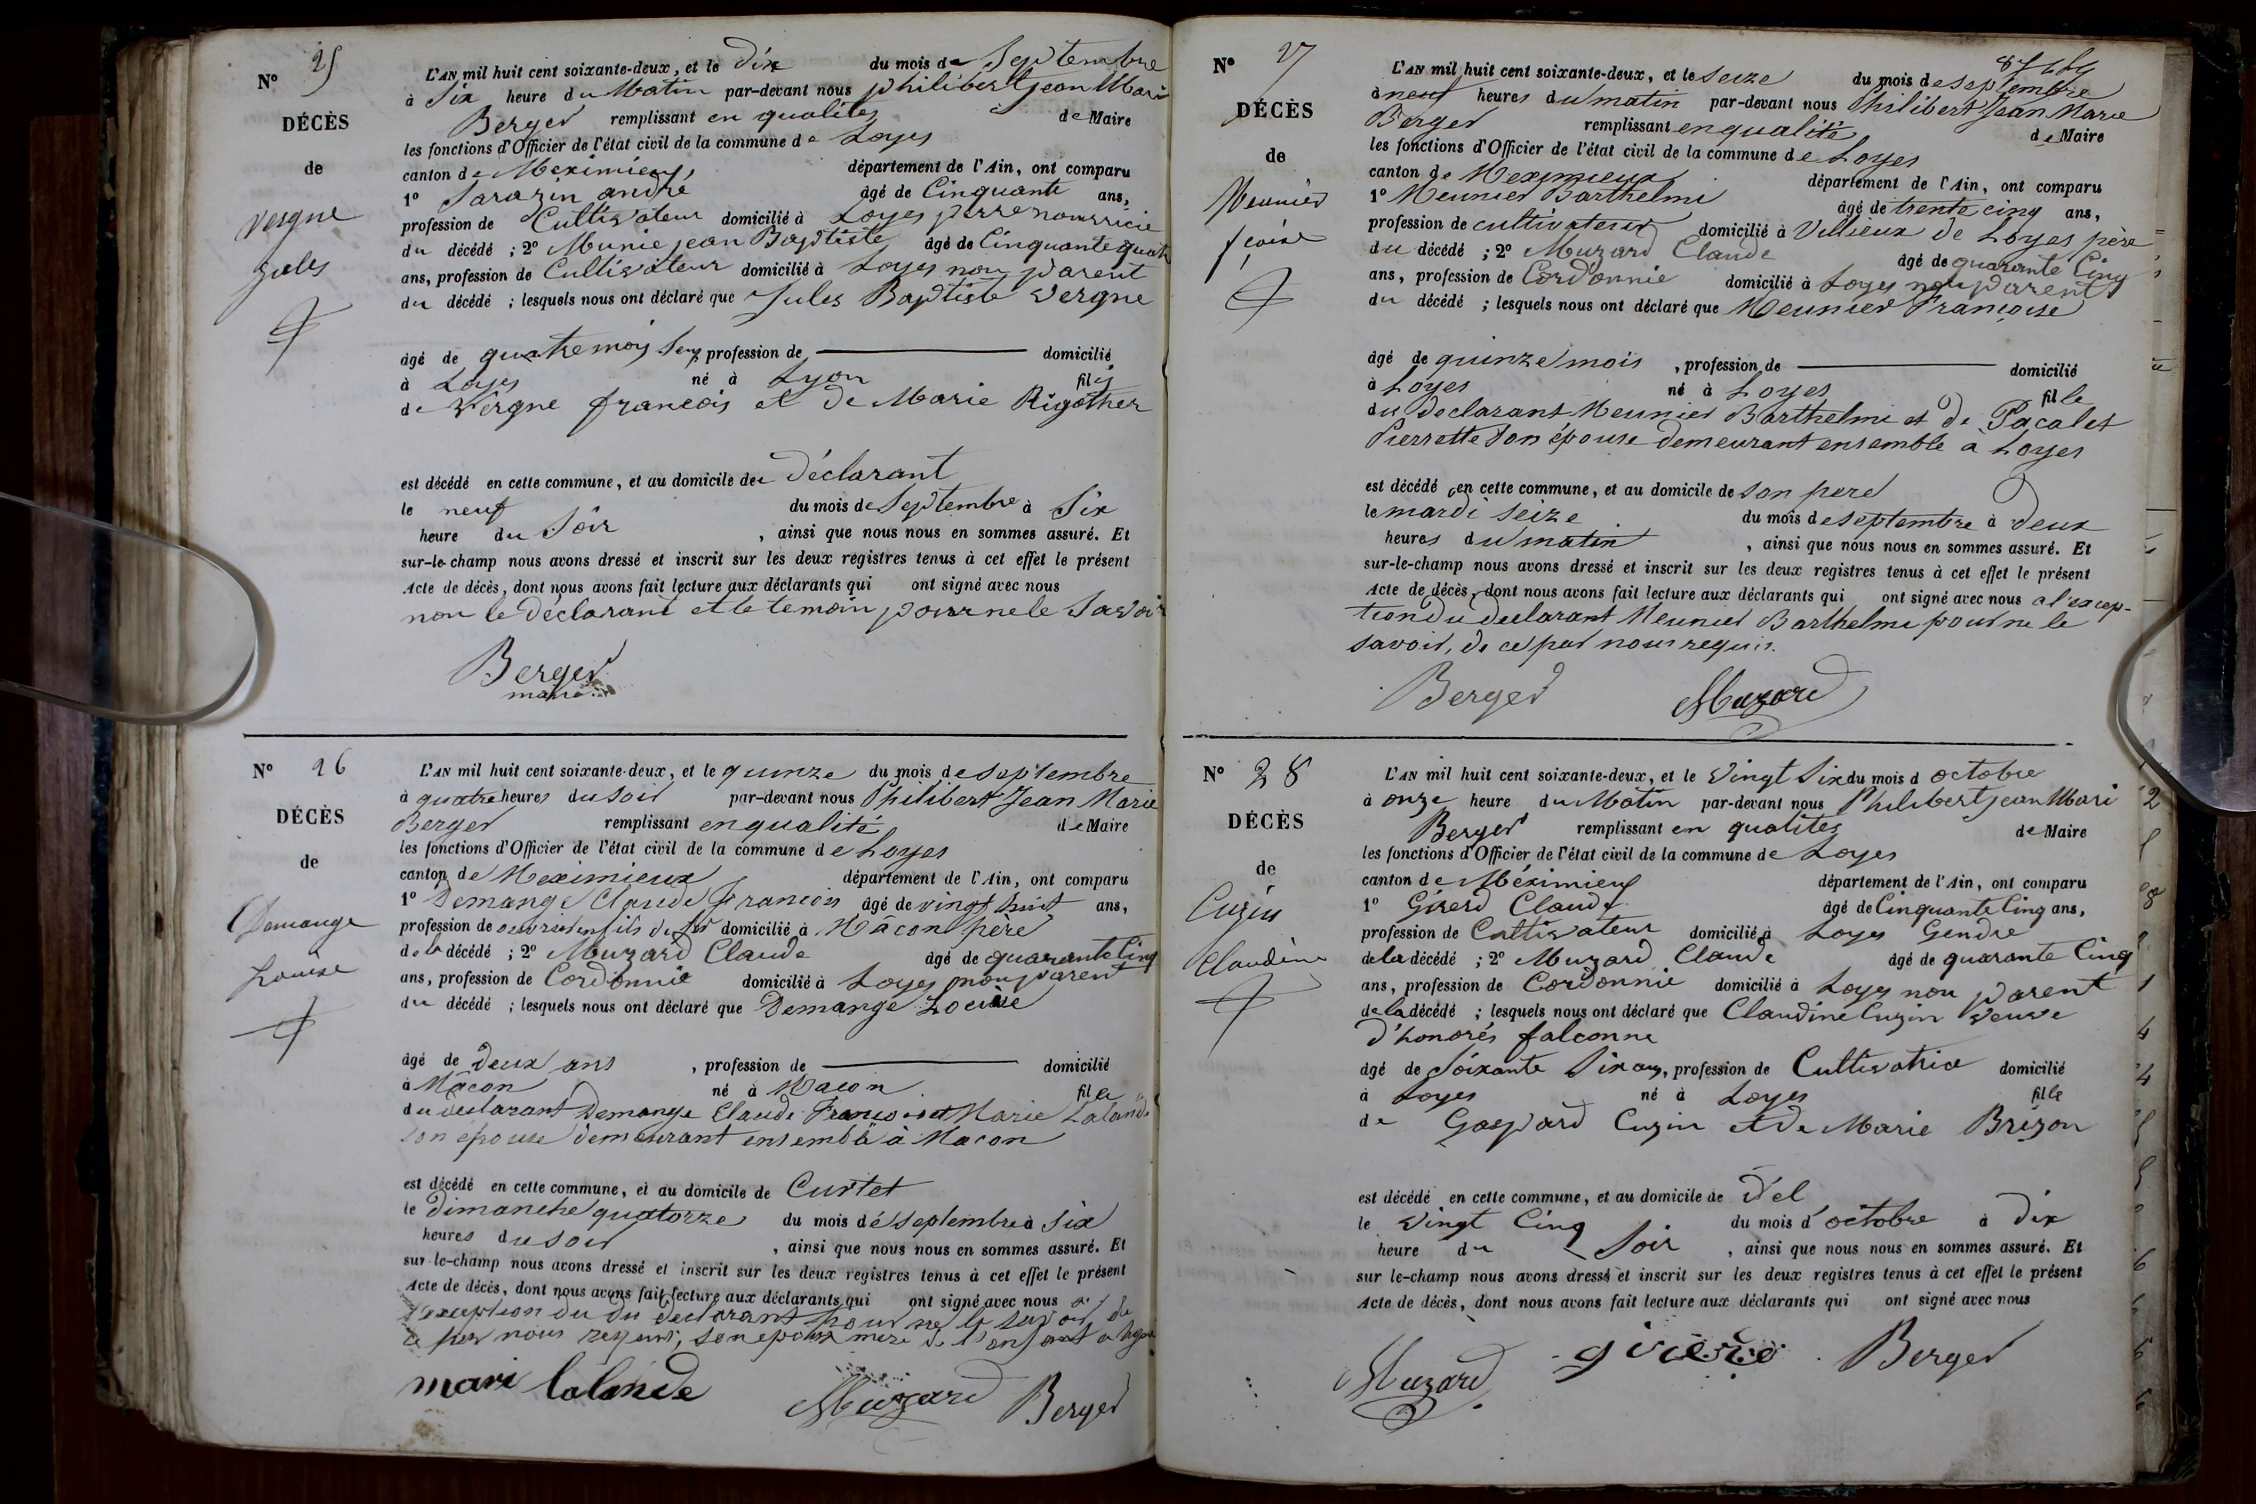 N° 25
DÉCÈS
de
Vergne
Jules
L'AN mil huit cent soixante-deux, et le Dix du mois de Septembre
à Six heure du Matin par-devant nous Philibert Jean Mari
Berger remplissant en qualités de Maire
les fonctions d'Officier de l'état civil de la commune de Loyes
canton de Meximieux département de l'Ain, ont comparu
1° Sarazin andré âgé de Cinquante ans,
profession de Cultivateur domicilié à Loyes père nourricié
du décédé ; 2° Munie jean Baptiste âgé de Cinquante quatr
ans, profession de Cultivateur domicilié à Loyes non parent
du décédé ; lesquels nous ont déclaré que Jules Baptiste Vergne
âgé de quatre mois , profession de domicilié
à Loyes né à Lyon fils
de Vergne francois et de Marie Rigother
est décédé en cette commune, et au domicile deu Déclarant
le neuf du mois de Septembre à Six
heure du Soir , ainsi que nous nous en sommes assuré. Et
sur-le-champ nous avons dressé et inscrit sur les deux registres tenus à cet effet le présent
Acte de décès, dont nous avons fait lecture aux déclarants qui ont signé avec nous
non le Déclarant et le temoin pour ne le Savoir
Berger
maire
N° 26
DÉCÈS
de
Demange
Louise
L'AN mil huit cent soixante-deux, et le quinze du mois de septembre
à quatre heures du soir par-devant nous Philibert Jean Marie
Berger remplissant en qualité de Maire
les fonctions d'Officier de l'état civil de la commune de Loyes
canton de Meximieux département de l'Ain, ont comparu
1° Demange Claude Francois âgé de vingt huit ans,
profession de ouvrier en fils de fer domicilié à Mâcon père
de la décédé ; 2° Muzard Claude âgé de quarante Cinq
ans, profession de Cordonnié domicilié à Loyes non parent
du décédé ; lesquels nous ont déclaré que Demange Louise
âgé de Deux ans , profession de domicilié
à Mâcon né à Macon fille
du declarant Demange Claude François et Marie Lalande
son épouse demeurant ensemble à Macon
est décédé en cette commune, et au domicile de Curtet
le Dimanche quatorze du mois de septembre à six
heures du soir , ainsi que nous nous en sommes assuré. Et
sur-le-champ nous avons dressé et inscrit sur les deux registres tenus à cet effet le présent
Acte de décès, dont nous avons fait lecture aux déclarants qui ont signé avec nous a
l'exception du du declarant pour ne le savoir de
ce par nous requis, son epouse mere de l'enfant a signé
mari lalande Muzard Berger
N° 27
DÉCÈS
de
Meunier
L'AN mil huit cent soixante-deux, et le seize du mois de septembre
à neuf heures du matin par-devant nous Philibert Jean Marie
Berger remplissant en qualité de Maire
les fonctions d'Officier de l'état civil de la commune de Loyes
canton de Meximieux département de l'Ain, ont comparu
1° Meunier Barthelmi âgé de trente cinq ans,
profession de cultivateur domicilié à Villieux de Loyes père
du décédé ; 2° Muzard Claude âgé de quarante Cinq
ans, profession de Cordonnié domicilié à Loyes non parent
du décédé ; lesquels nous ont déclaré que Meunier Françoise
âgé de quinze mois , profession de domicilié
à Loyes né à Loyes fille
du declarant Meunier Barthelmi et de Pacalet
Pierrette son épouse demeurant ensemble à Loyes
est décédé en cette commune, et au domicile de son pere
le mardi seize du mois de septembre à deux
heures du matin , ainsi que nous nous en sommes assuré. Et
sur-le-champ nous avons dressé et inscrit sur les deux registres tenus à cet effet le présent
Acte de décès, dont nous avons fait lecture aux déclarants qui ont signé avec nous a l'excep-
tion du declarant Meunier Barthelmi pour ne le
savoir, de ce par nous requis.
Berger Muzard
N° 28
DÉCÈS
de
Cuzin
Claudine
L'AN mil huit cent soixante-deux, et le Vingt Six du mois d octobre
à onze heure du Matin par-devant nous Philibert jean Mari
Berger remplissant en qualités de Maire
les fonctions d'Officier de l'état civil de la commune de Loyes
canton de Méximieux département de l'Ain, ont comparu
1° Girerd Claude âgé de Cinquante Cinq ans,
profession de Cultivateur domicilié à Loyes Gendre
de la décédé ; 2° Muzard Claude âgé de quarante Cinq
ans, profession de Cordonnié domicilié à Loyes non parent
de la décédé ; lesquels nous ont déclaré que Claudine Cuzin veuve
d'honorés falconne
âgé de Soixante Six ans, profession de Cultivatrice domicilié
à Loyes né à Loyes fille
de Gaspard Cuzin et de Marie Brézon
est décédé en cette commune, et au domicile de d'el
le Vingt Cinq du mois d'octobre à Dix
heure du Soir , ainsi que nous nous en sommes assuré. Et
sur le-champ nous avons dressé et inscrit sur les deux registres tenus à cet effet le présent
Acte de décès, dont nous avons fait lecture aux déclarants qui ont signé avec nous
Muzard Berger